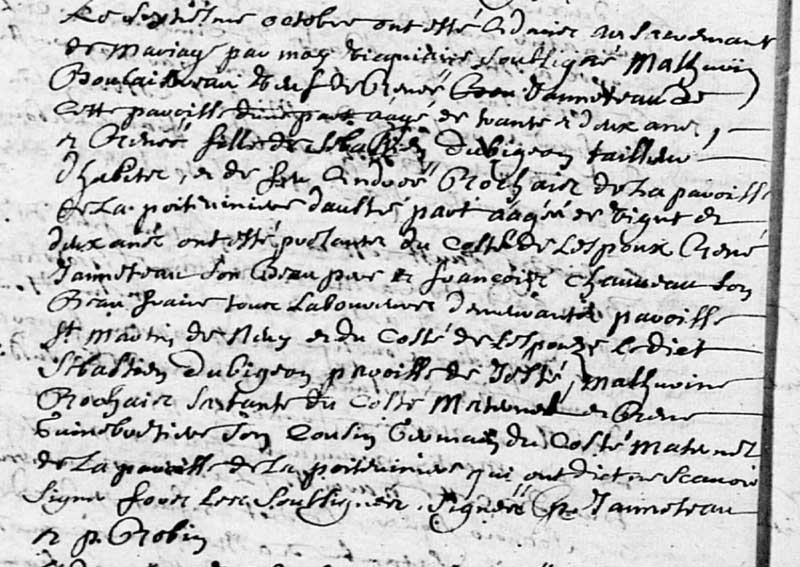 Le septiesme octobre ont esté
de mariage par moy vicquaire soubsigné Mathurin
Boulaitreau veuf de Renee Janneteau de
cette paroisse d'une part aagé de trante et deux ans,
et Renée fille de Sebastien Dubigeon tailleur
d'habits, et de feu Andrée Rochaier de la paroisse
de La poiteviniere d'aultre part aagée de vignt et
deux ans ont esté presantes du Costé de Lespoux René
Janneteau son Beau pere et francois Chauveau son
Beau fraire tous Laboureurs demeurants paroisse
St Martin de et du Costé de Lespouze Ledict
Sebastien Dubigeon paroisse de Mathurine
Rochaier sa tante du Costé Maternel et Rene
son Cousin Germain du Costé Maternel
de La paroisse de La poiteviniere qui ont dict ne scavoir
signe fors Les soubsignés. Signés R. Janneteau
et p. Robin